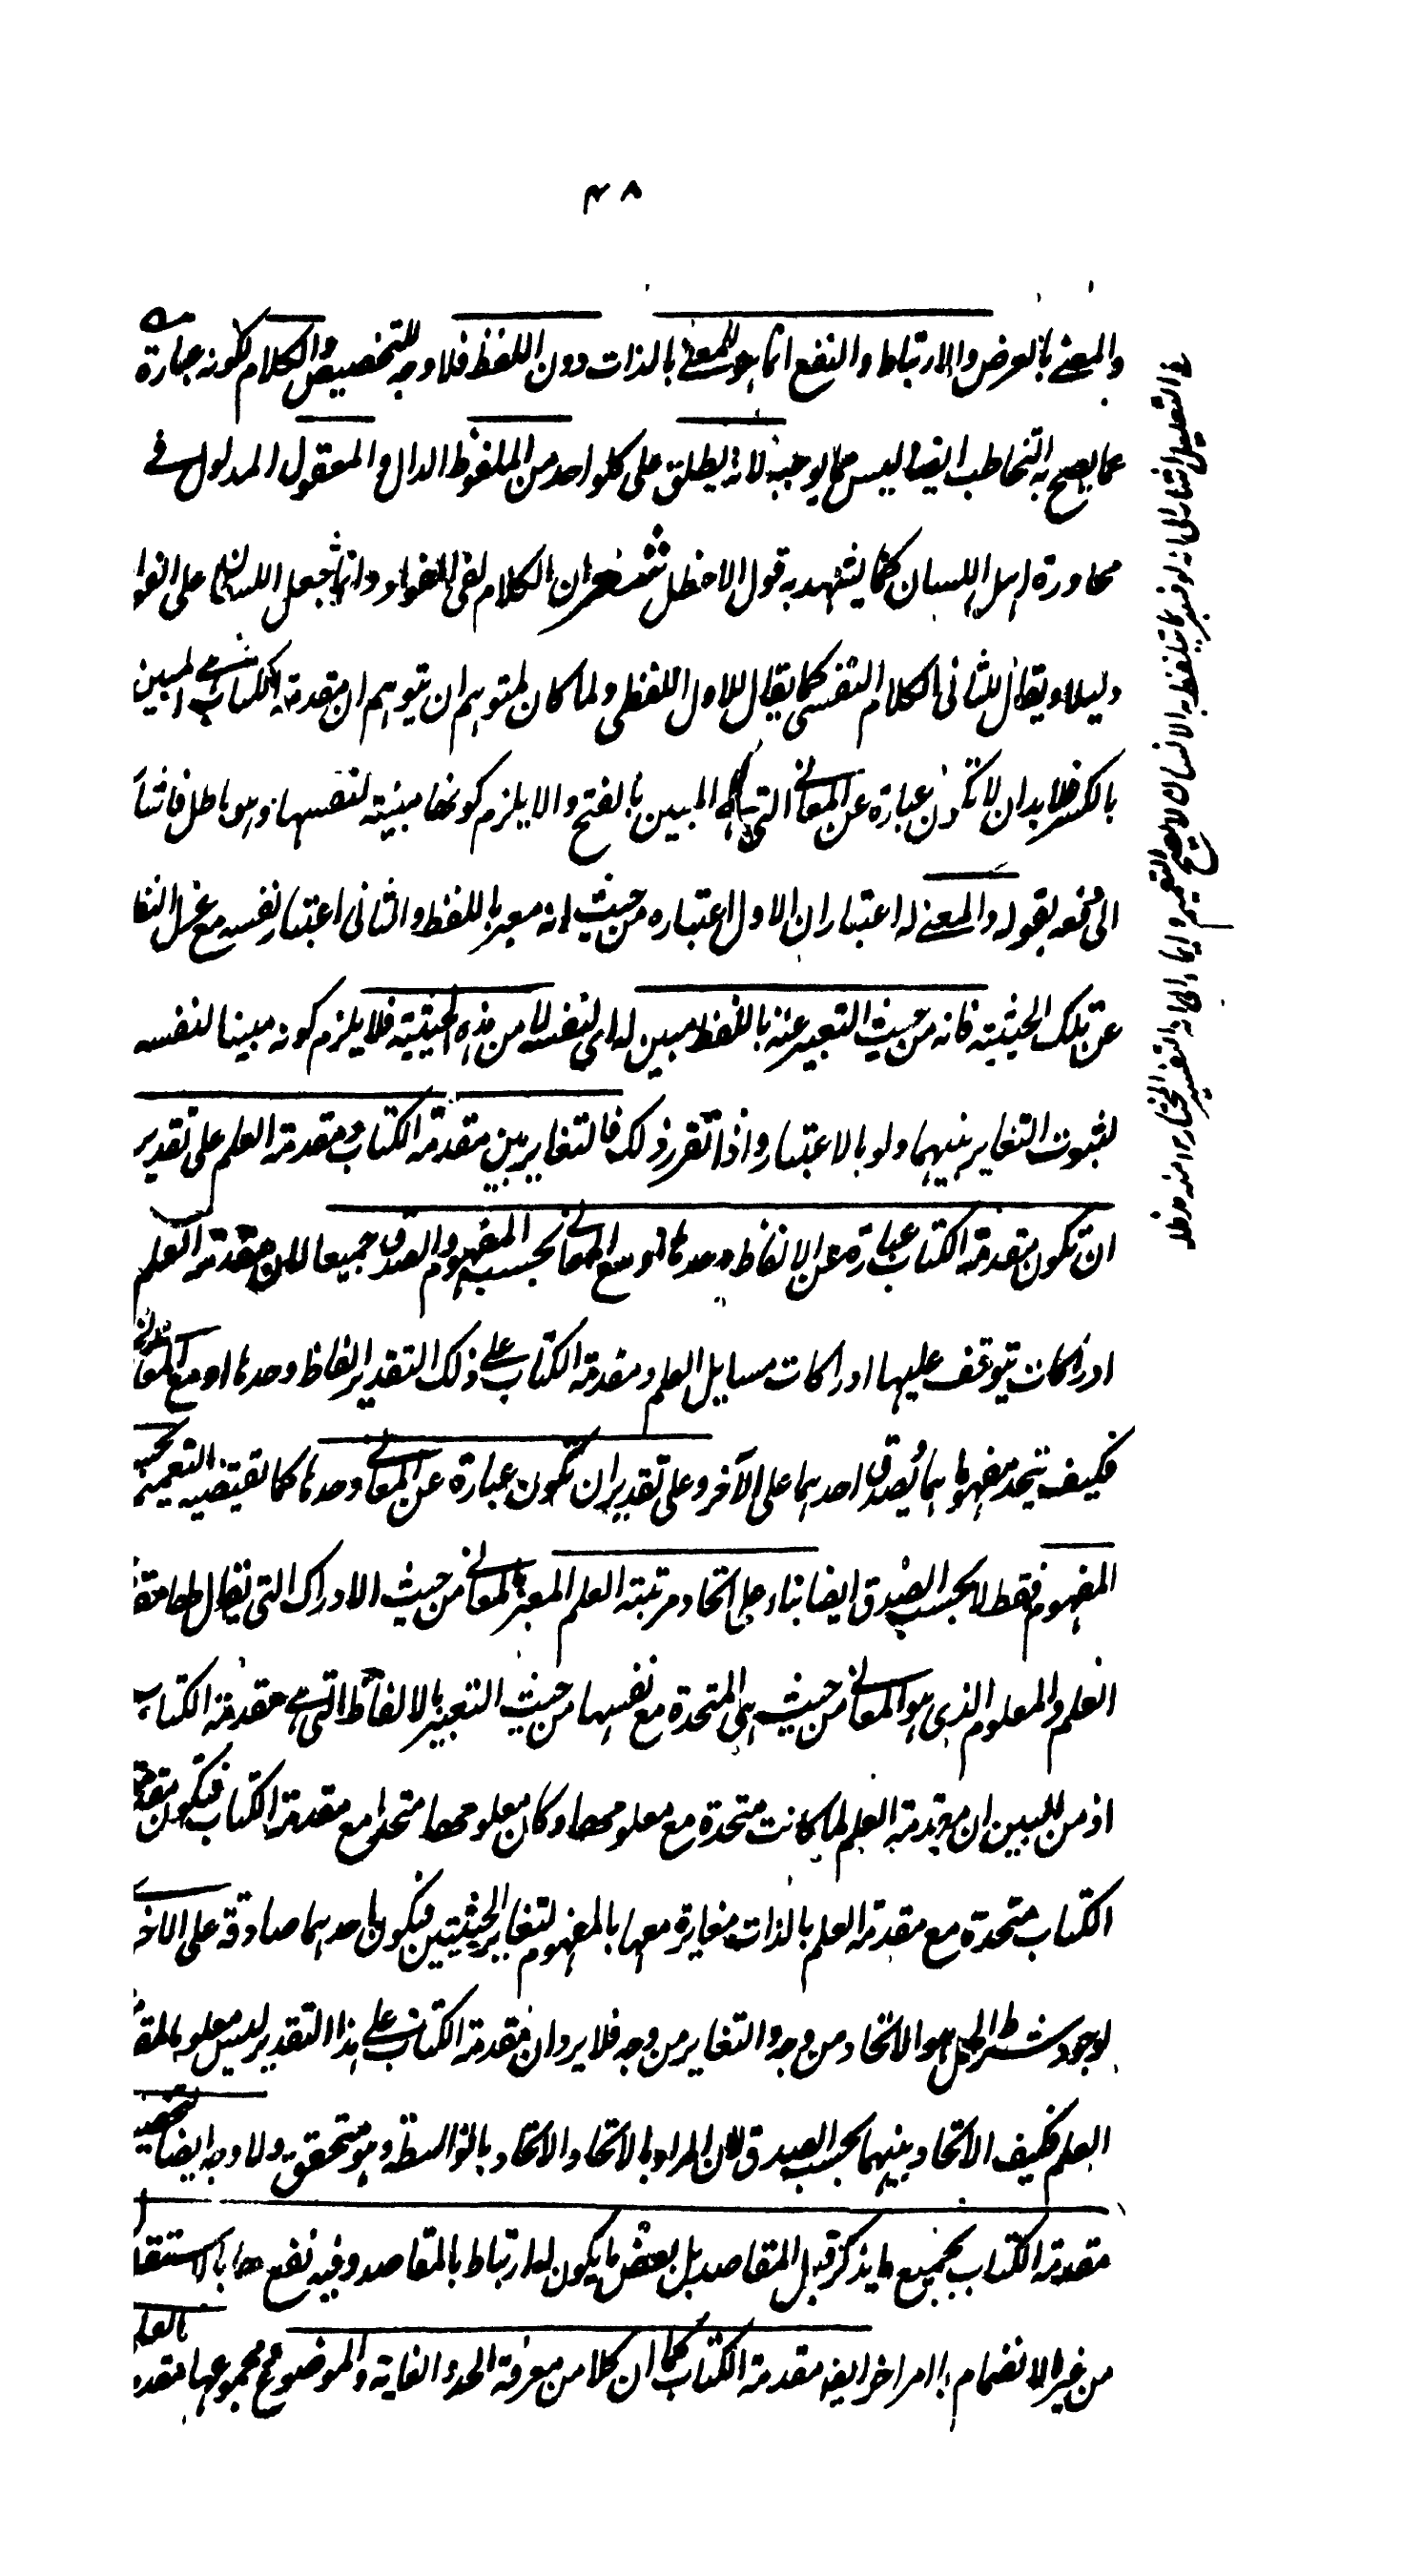 ٤٨
والمعنے بالعرض والارتباط والنفع انما هو للمعنے بالذات دون اللفظ فلا وجه للتخصيص والكلام لكونه عبارة
عما يصح به التخاطب ايضا ليس مما يوجبه لانه يطلق على كلواحد من الملفوظ الدال والمعقول المدلول فے
محاورة اهل اللسان كما يشهد به قول الاخطل شعر ان الكلام لفى الفواد وانما جعل اللسان على الفوا
دليلا ويقال للثانى الكلام النفسى كما يقال للاول اللفظى ولما كان لمتوهم ان يتوهم ان مقدمة الكتاب هے المبين
بالكسر فلا بد ان لا تكون عبارة عن المعانے التى هى المبين بالفتح والا يلزم كونها مبينة لنفسها وهو باطل فاشا
الى دفعه بقوله والمعنے له اعتباران الاول اعتباره من حيث انه معبر باللفظ والثانى اعتبار نفسه مع عزل النظ
عن تلك الحيثية فانه من حيث التعبير عنه باللفظ مبين له اى لنفسه لا من هذه الحيثية فلا يلزم كونه مبينا لنفسه
لثبوت التغاير بينهما ولو بالاعتبار واذا تقرر ذلك فالتغاير بين مقدمة الكتاب ومقدمة العلم على تقدير
ان تكون مقدمة الكتاب عبارة عن الالفاظ وحدها او مع المعانے بحسب المفهوم والصدق جميعا لان مقدمة العلم
ادراكات يتوقف عليها ادراكات مسايل العلم ومقدمة الكتاب علے ذلك التقدير الفاظ وحدها او مع المعانے
فكيف يتحد مفهوماهما يصدق احدهما على الآخر وعلى تقدير ان تكون عبارة عن المعانے وحدها كما تقتضيه التعمية بحسب
المفهوم فقط لا بحسب الصدق ايضا بناء على اتحاد مرتبة العلم المعبر المعانے من حيث الادراك التى يقال لها مقد
العلم والمعلوم الذى هو المعانے من حيث هى المتحدة مع نفسها من حيث التعبير بالالفاظ التى هے مقدمة الكتاب
اذ من المبين ان مقدمة العلم لما كانت متحدة مع معلومها وكان معلومها متحدا مع مقدمة الكتاب فتكون مقدمة
الكتاب متحدة مع مقدمة العلم بالذات مغايرة معها بالمفهوم لتغاير الحيثيتين فيكون احدهما صادقة على الاخرے
لوجود شرط الحمل هو الاتحاد من وجه والتغاير من وجه فلا يرد ان مقدمة الكتاب علے هذا التقدير ليس معلوم المقد
العلم فكيف الاتحاد بينهما بحسب الصدق لان المراد بالاتحاد الاتحاد بالواسطة وهو متحقق ولا وجه ايضا لتخصيص
مقدمة الكتاب بجميع ما يذكر قبل المقاصد بل بعض ما يكون له ارتباط بالمقاصد وفيه نفع ها بالاستقلا
من غير الانضمام با امر اخر ايضا مقدمة الكتاب كما ان كلا من معرفة الحد والغاية والموضوع مع مجموعها مقدمة العلم
فے التعليل اشار الى انه لو فسر بما يتلفظ به الانسان لا يصح التعميم وايماء الى انه التفسير المختار ١٢ منه مدظله